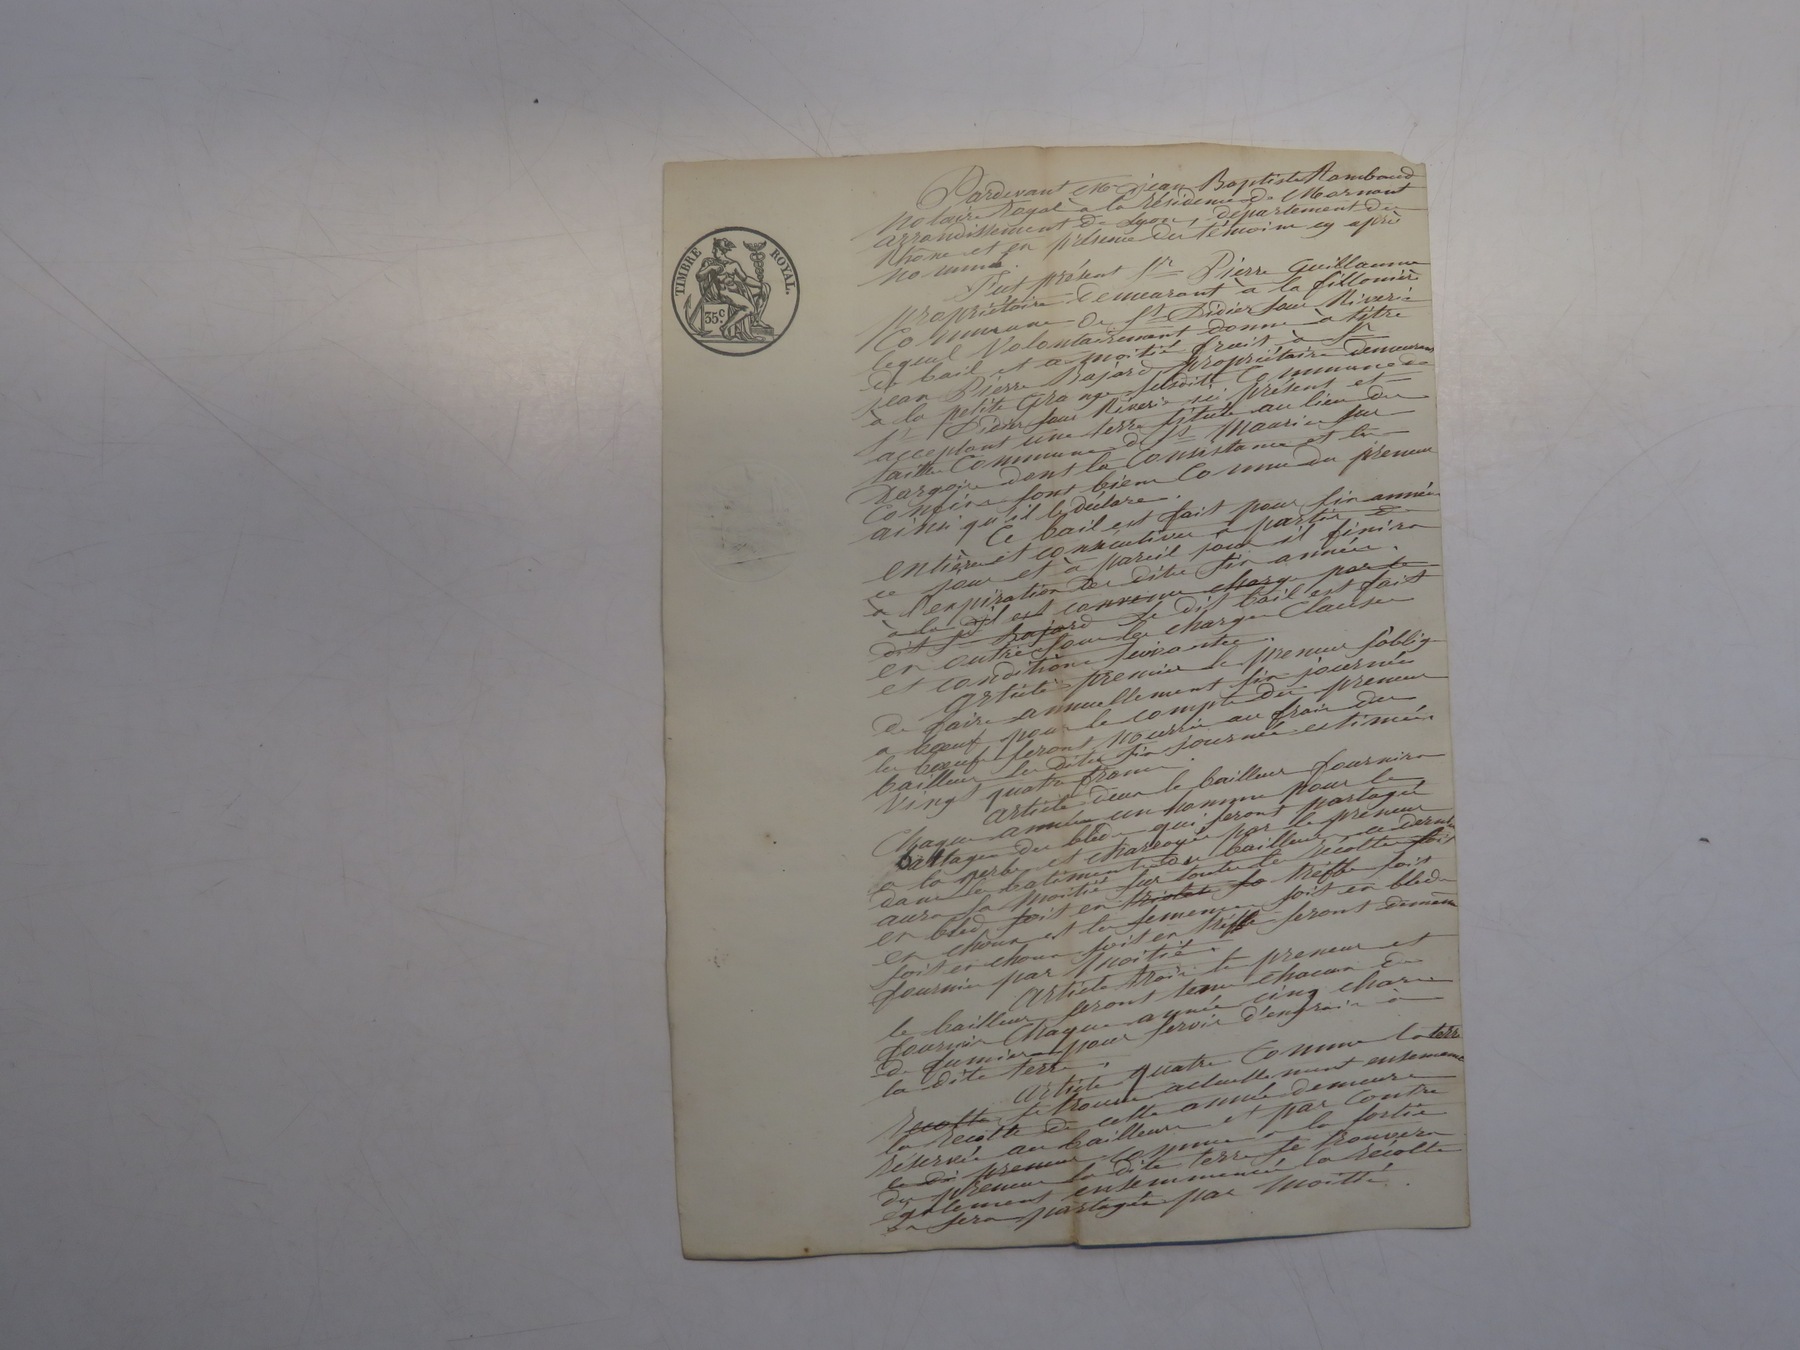 TIMBRE ROYAL.
35c
Pardevant Me jean Baptiste Rambaud
notaire Royal à la résidence de Mornant
arrondissement de Lyon, département du
Rhône et en présence des témoins cy après
nommés.
fut présent Sr Pierre Guillaume
propriétaire demeurant à la fillonière
Commune de St Didier sous Riverie
lequel Volontairement donne à titre
de bail et a moitié fruit à Sr
jean Pierre Bajard propriétaire demeurant
à la petite Grange susdite Commune de
St Didier sous Riverie ici présent et
acceptant une terre située au lieu de
Commune de St Maurice sur
Dargoire dont la Consistance et les
Confins sont bien Connu du preneur
ainsi qu'il le déclare.
Ce bail est fait pour six années
entières et consécutives à partir de
ce jour et à pareil jour il finira
à l'expiration des dites six années.
il est convenu charge par le
dit Sr Bajard le dit bail est fait
en outre sous les charges Clauses
et conditions suivantes.
article premier le preneur s'oblige
de faire annuellement six journées
a bœuf pour le compte du preneur
les bœufs seront nourris au frais du
bailleur les dites six journées estimées
vingt quatre francs.
article deux le bailleur fournira
Chaque année un homme pour le
battages des bleds qui seront partagés
a la gerbe et charroyés par le preneur
dans les batiments du bailleur ce dernier
aura la moitié sur toutes les récoltes soit
en bled soit en treffle soit
en choux et les semences soit en bleds
soit en choux soit en treffle seront demême
fournies par moitié.
article trois le preneur et
le bailleur seront tenu chacun de
fournir Chaque année cinq chars
de fumier pour servir d'engrais à
la dite terre.
article quatre Comme la terre
recolte se trouve actuellement ensemencé
la recolte de cette année demeure
réservée au bailleur et par contre
preneur comme a la sortie
du preneur la dite terre se trouvera
également ensemmencée la récolte
en sera partagée par moitié.